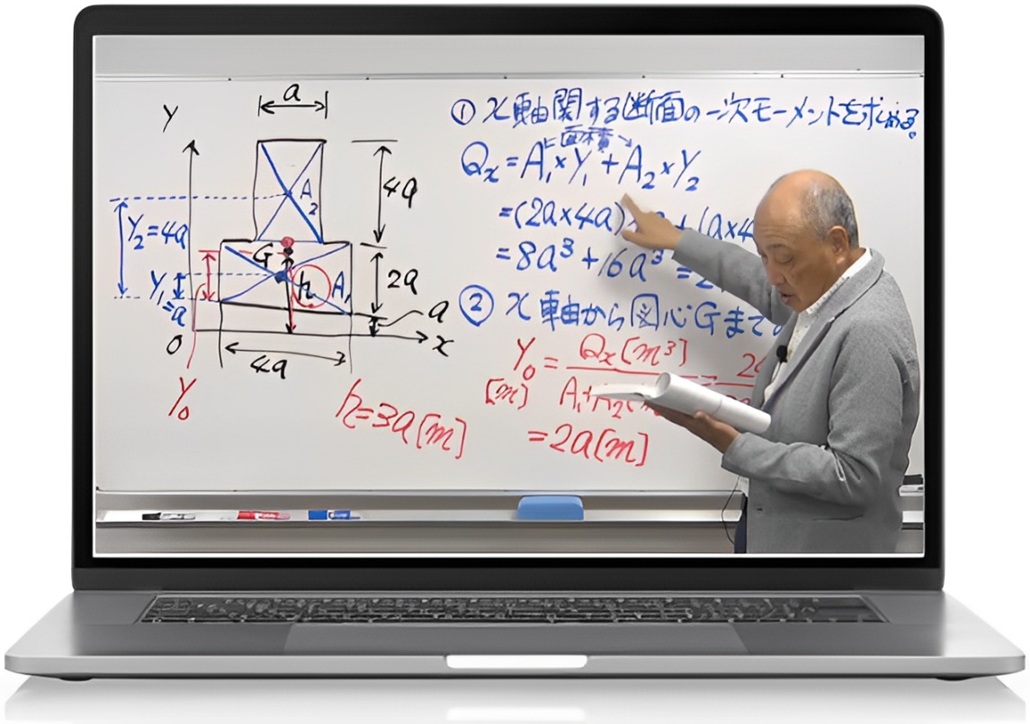 a
Y
4a
A2
Y2=4a
G
h
A1
2a
Y1=a
a
O
x
4a
Y0
h=3a[m]
① x軸関する断面の一次モーメントを求める。
面積
Qx=A1×Y1+A2×Y2
=(2a×4a)
+(a×4
=8a³+16a³=2
② x軸から図心Gまで
Y0=Qx[m³]
[m]
A1+A2
=2a[m]